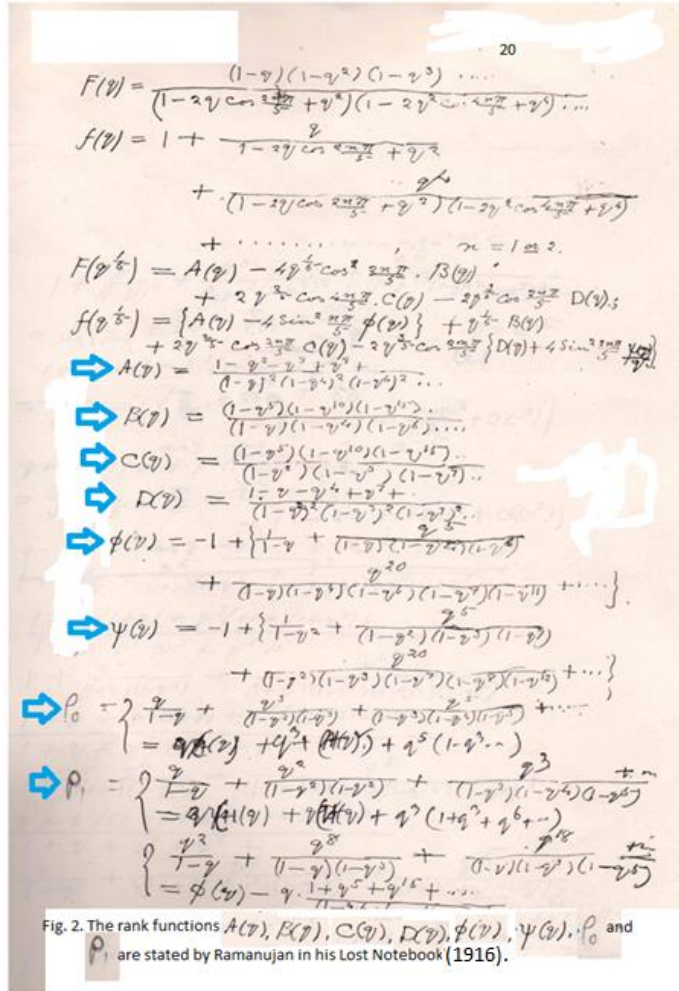 20
F(q) = (1-q)(1-q²)(1-q³) ..... / (1-2q cos 2nπ/5 + q²)(1-2q² cos 4nπ/5 + q⁴) ....
f(q) = 1 + q / 1-2q cos 2nπ/5 + q²
+ q⁴ / (1-2q cos 2nπ/5 + q²)(1-2q² cos 4nπ/5 + q⁴)
+ ........ , n = 1 or 2.
F(q^1/5) = A(q) - 4q^1/5 cos² 2nπ/5 . B(q)
+ 2q^2/5 cos 4nπ/5 . C(q) - 2q^3/5 cos 2nπ/5 D(q) ;
f(q^1/5) = {A(q) - 4 sin² nπ/5 φ(q)} + q^1/5 B(q)
+ 2q^2/5 cos 2nπ/5 C(q) - 2q^3/5 cos 2nπ/5 {D(q) + 4 sin² 2nπ/5
A(q) = 1 - q² - q³ + q⁹ + / (1-q)²(1-q⁴)²(1-q⁶)² ...
B(q) = (1-q⁵)(1-q¹⁰)(1-q¹⁵).. / (1-q)(1-q⁴)(1-q⁶)....
C(q) = (1-q⁵)(1-q¹⁰)(1-q¹⁵).. / (1-q²)(1-q³)(1-q⁷)..
D(q) = 1 - q - q⁴ + q⁷ + .. / (1-q²)²(1-q³)²(1-q⁷)²..
φ(q) = -1 + { 1/1-q + q⁵ / (1-q)(1-q⁴)(1-q⁶)
+ q²⁰ / (1-q)(1-q⁴)(1-q⁶)(1-q⁹)(1-q¹¹) + ...}.
ψ(q) = -1 + { 1/1-q² + q⁵ / (1-q²)(1-q³)(1-q⁷)
+ q²⁰ / (1-q²)(1-q³)(1-q⁷)(1-q⁸)(1-q¹²) + ...}
ρ₀ = { q/1-q + q³ / (1-q²)(1-q³) + q⁵ / (1-q³)(1-q⁴)(1-q⁵) + ....
+ q⁵(1-q³..)
ρ₁ = { q/1-q + q² / (1-q²)(1-q³) + q³ / (1-q³)(1-q⁴)(1-q⁵)
+ q³(1+q³+q⁶+..)
{ q²/1-q + q⁸ / (1-q)(1-q³) + q¹⁸ / (1-q)(1-q³)(1-q⁵)
= φ(q) - q . 1+q⁵+q¹⁵+ ....
Fig. 2. The rank functions A(q), B(q), C(q), D(q), φ(q), ψ(q), ρ₀ and
ρ₁ are stated by Ramanujan in his Lost Notebook (1916).